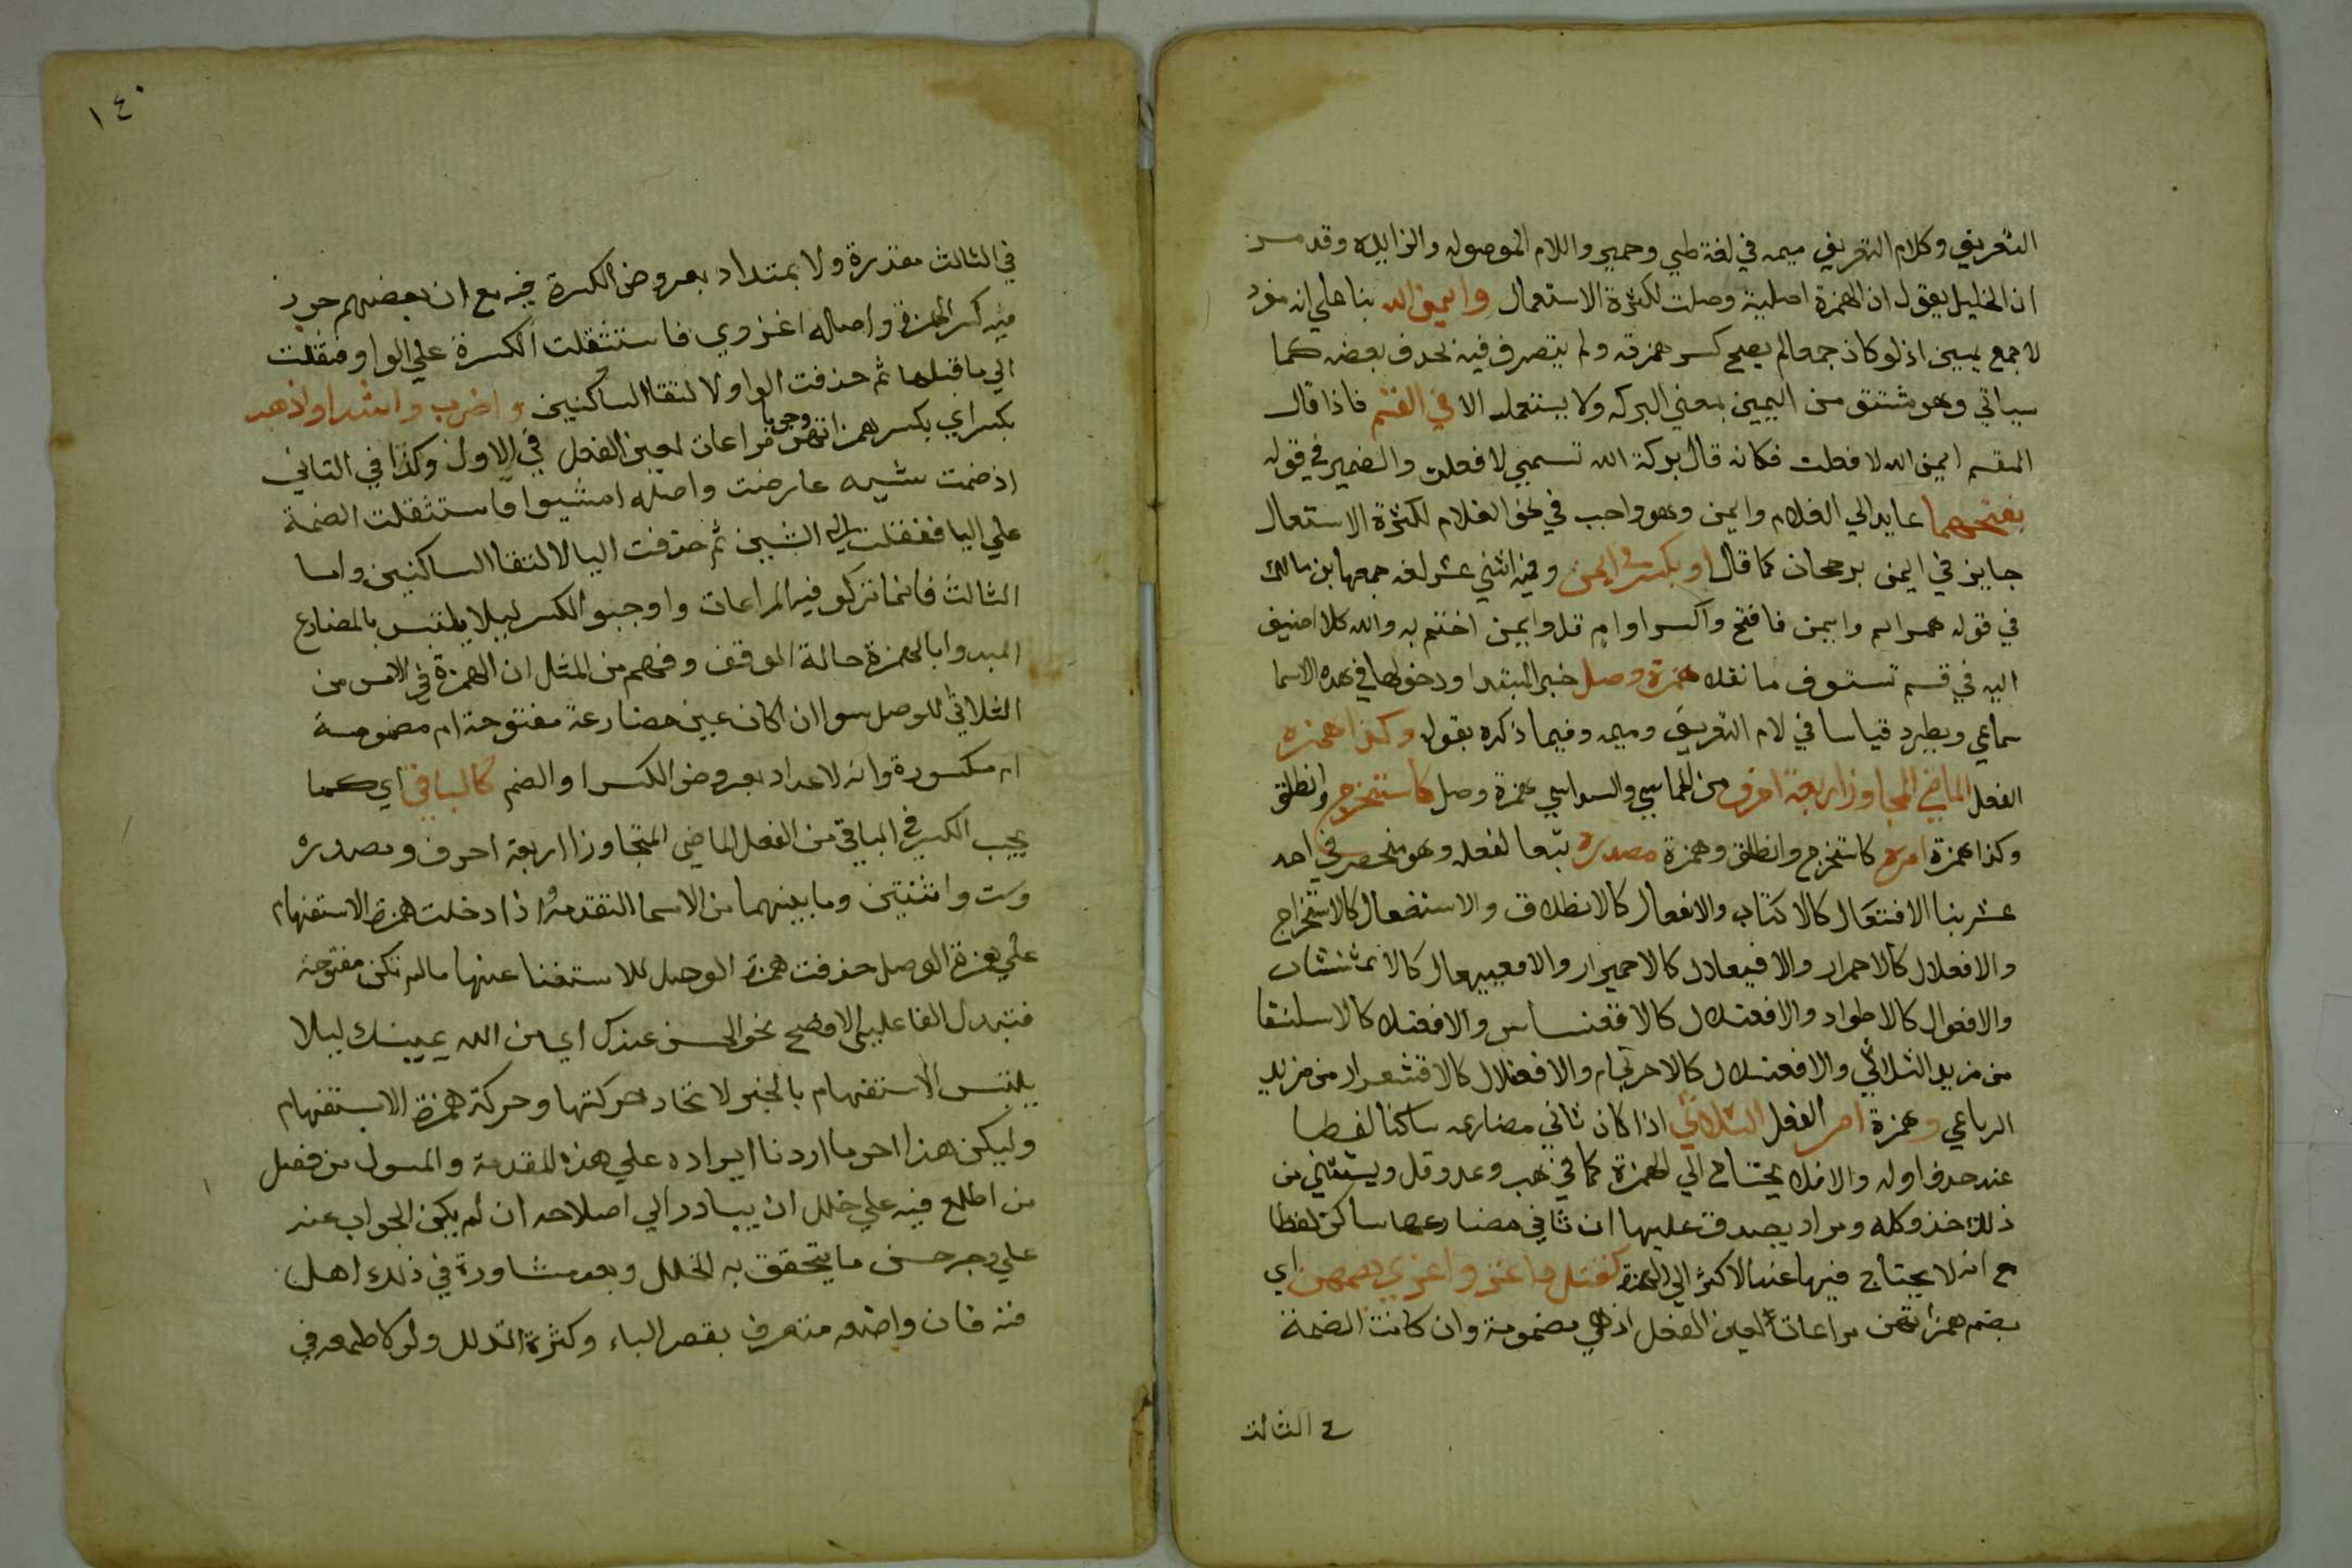 التعريف وكلام التعريف ميمه في لغة طيي وحمير واللام الموصوله والزايده وقد مر
ان الخليل يقول ان الهمزة اصلية وصلت لكثرة الاستعمال وايمن الله بنا علي انه مفرد
لا جمع يمين اذ لو كان جمعا لم يصح كسر همزته ولم يتصرف فيه بحدف بعضه كما
سياتي وهو مشتق من اليمين بمعني البركه ولا يستعمل الا في القسم فاذا قال
المقسم ايمن الله لافعلت فكانه قال بركة الله قسمي لافعلن والضمير في قوله
بفتحهما عايد الي الغلام وايمن وهو واجب في نحو الغلام لكثرة الاستعمال
جايز في ايمن برجحان كما قال او بكسر في ايمن وفيه اثني عشر لغه جمعها ابن مالك
في قوله همر ايم وايمن فافتح واكسر او ام قل وايمن اختم به والله كلا اضيف
اليه في قسم تستوف ما نقل همزة وصل خبر المبتدا ودخولها في هذه الاسما
سماعي ويطرد قياسا في لام التعريف وميمه وفيما ذكره بقوله وكذا همزة
الفعل الماضي المجاوز اربعة احرف من الخماسي والسداسي همزة وصل كاستخرج وانطلق
وكذا همزة امره كاستخرج وانطلق وهمزة مصدره تبعا لفعله وهو منحصر في احد
عشر بنا الافتعال كالاكتاب والانفعال كالانطلاق والاستفعال كالاستخراج
والافعلال كالاحمرار والافيعلال كالاحميرار والافعيعال كالاعشيشاب
والافعوال كالاجلواد والافعنلال كالاقعنساس والافعنلا كالاسلنقا
من مزيد الثلاثي والافعنلال كالاحرنجام والافعلال كالاقشعرار من مزيد
الرباعي وهمزة امر الفعل الثلاثي اذا كان ثاني مضارعه ساكنا لفظا
عند حدف اوله والا فلا يحتاج الي الهمزة كما في هب وعد وقل ويستثني من
ذلك خذ وكل ومر اذ يصدق عليها ان ثاني مضارعها ساكن لفظا
مع انه لا يحتاج فيها عند الاكثر الي الهمزة كقتل واغز واغزي بضمهن اي
بضم همزاتهن مراعات لعين الفعل اذ هي مضمومة وان كانت الضمة
في الثالث
١٤٠
في الثالث مقدرة ولا يمتداد بعروض الكسرة فيه مع ان بعضهم جوز
فيه كسر الهمزة واصله اغزوي فاستثقلت الكسرة علي الواو فنقلت
الي ما قبلها ثم حذفت الواو لالتقا الساكنين واضرب وامشوا واذهب
بكسر اي بكسر همزاتهن وجوبا مراعات لعين الفعل في الاول وكذا في الثاني
اذ ضمت شينه عارضت واصله امشيوا فاستثقلت الضمة
علي اليا فنقلت الي الشين ثم حذفت اليا لالتقا الساكنين واما
الثالث فانما تركو فيه المراعات واوجبو الكسر ليلا يلتبس بالمضارع
المبدوا بالهمزة حالة الوقف وفهم من المثل ان الهمزة في الامر من
الثلاثي للوصل سوا ان كان عين مضارعة مفتوحة ام مضمومة
ام مكسورة وانه لا عداد بعروض الكسر او الضم كالباقي اي كما
يجب الكسر في الباقي من الفعل الماضي المتجاوز اربعة احرف ومصدره
وست واثنتين وما بينهما من الاسما المتقدمة واذا دخلت همزة الاستفهام
علي همزة الوصل حذفت همزة الوصل للاستغنا عنها ما لم تكن مفتوحة
فتبدل الفا علي الافصح نحو الحسن عندك اي من الله يمينك ليلا
يلتبس الاستفهام بالخبر لاتحاد حركتها وحركة همزة الاستفهام
وليكن هذا اخر ما اردنا ايراده علي هذه المقدمة والمسول من فضل
من اطلع فيه علي خلل ان يبادر الي اصلاحه ان لم يكن الجواب عنه
علي وجه حسن ما يتحقق به الخلل وبعد مشاورة في ذلك اهل
فنه فان واضعه معترف بقصر الباع وكثرة الذلل ولو كا طمعه في